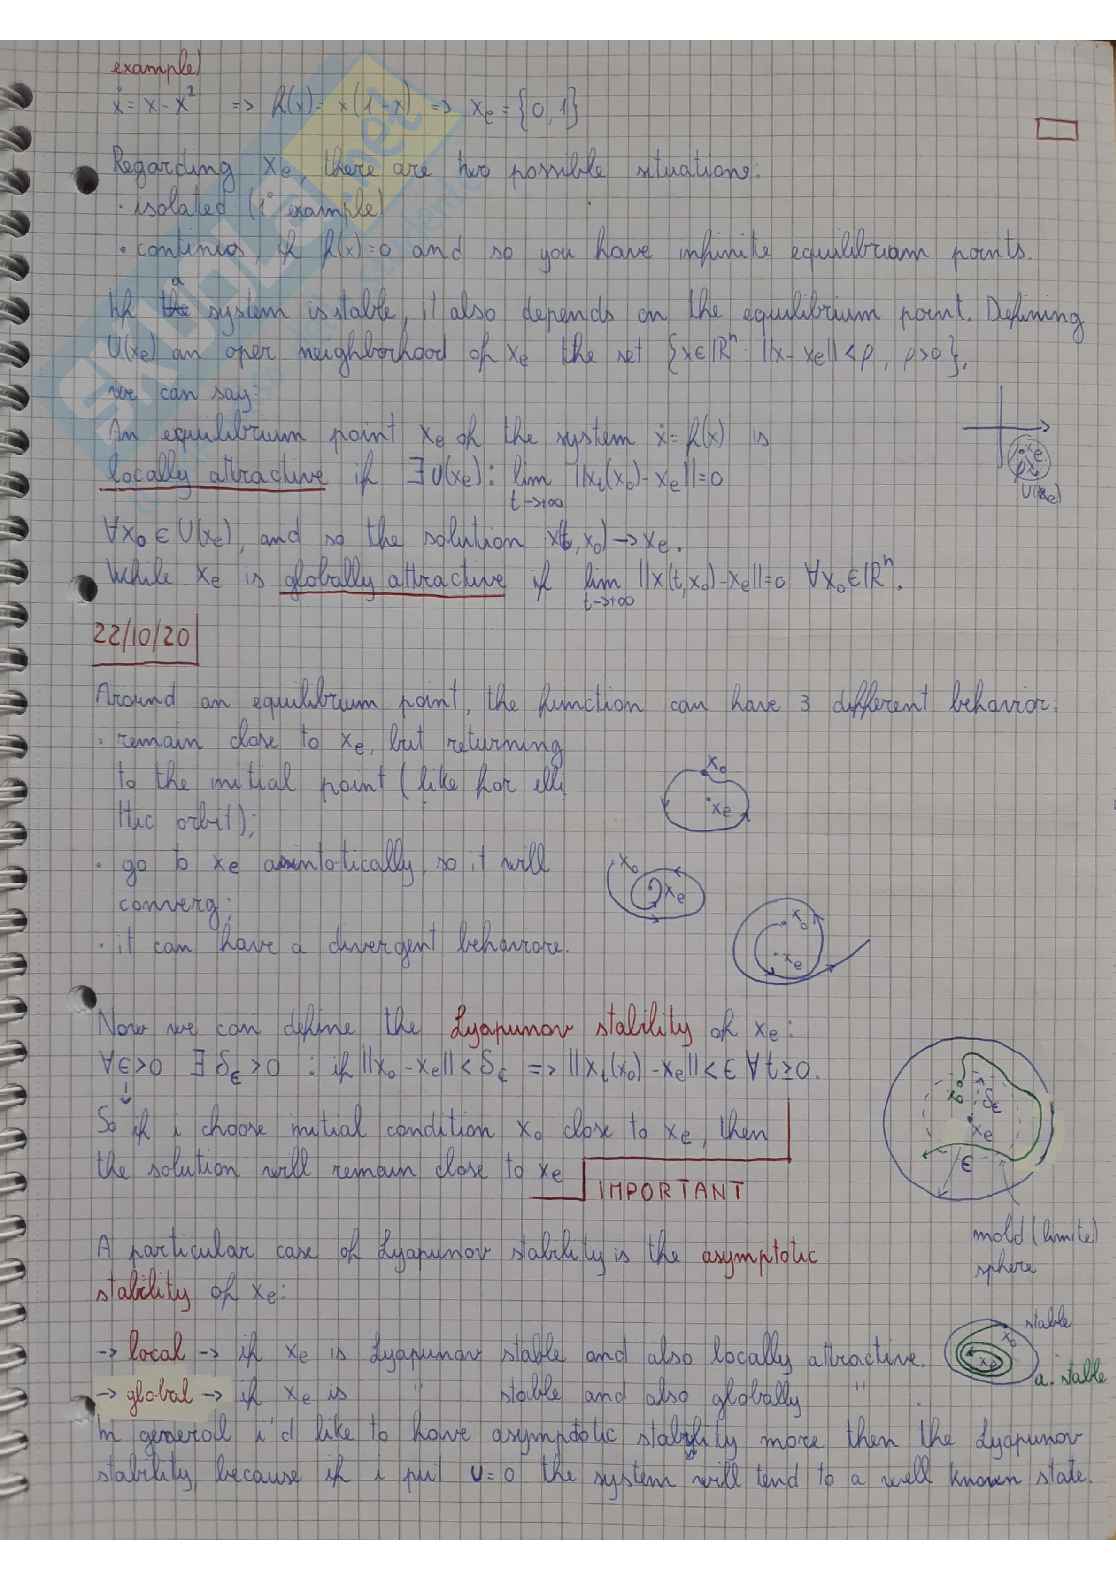 example)
ẋ = x - x² => f(x) = x(1-x) => xe = {0, 1}
Regarding xe, there are two possible situations:
· isolated (1° example)
· continuos if f(x)=0 and so you have infinite equilibrium points.
If a system is stable, it also depends on the equilibrium point. Defining
U(xe) an open neighborhood of xe the set {x∈ℝⁿ: ||x - xe|| < ρ, ρ>0},
we can say:
An equilibrium point xe of the system ẋ = f(x) is
locally attractive if ∃ U(xe): lim t->+∞ ||xt(x0) - xe|| = 0
xe
ρ
U(xe)
∀x0 ∈ U(xe), and so the solution x(t, x0) -> xe.
While xe is globally attractive if lim t->+∞ ||x(t, x0) - xe|| = 0 ∀x0 ∈ ℝⁿ.
22/10/20
Around an equilibrium point, the function can have 3 different behavior:
· remain close to xe, but returning
to the initial point (like for elli
ttic orbit);
x0
xe
· go to xe asintotically, so it will
converg;
x0
xe
· it can have a divergent behaviore.
x0
xe
Now we can define the Lyapunov stability of xe:
∀ϵ>0 ∃ δϵ>0 : if ||x0 - xe|| < δϵ => ||xt(x0) - xe|| < ϵ ∀t≥0.
So if i choose initial condition x0 close to xe, then
the solution will remain close to xe
IMPORTANT
x0
δϵ
xe
ϵ
mold (limite)
sphere
A particular case of Lyapunov stability is the asymptotic
stability of xe:
-> local -> if xe is Lyapunov stable and also locally attractive.
-> global -> if xe is " stable and also globally " .
stable
x0
xe
a. stable
In generall i'd like to have asymptotic stability more then the Lyapunov
stability, because if i put u=0 the system will tend to a well known state.